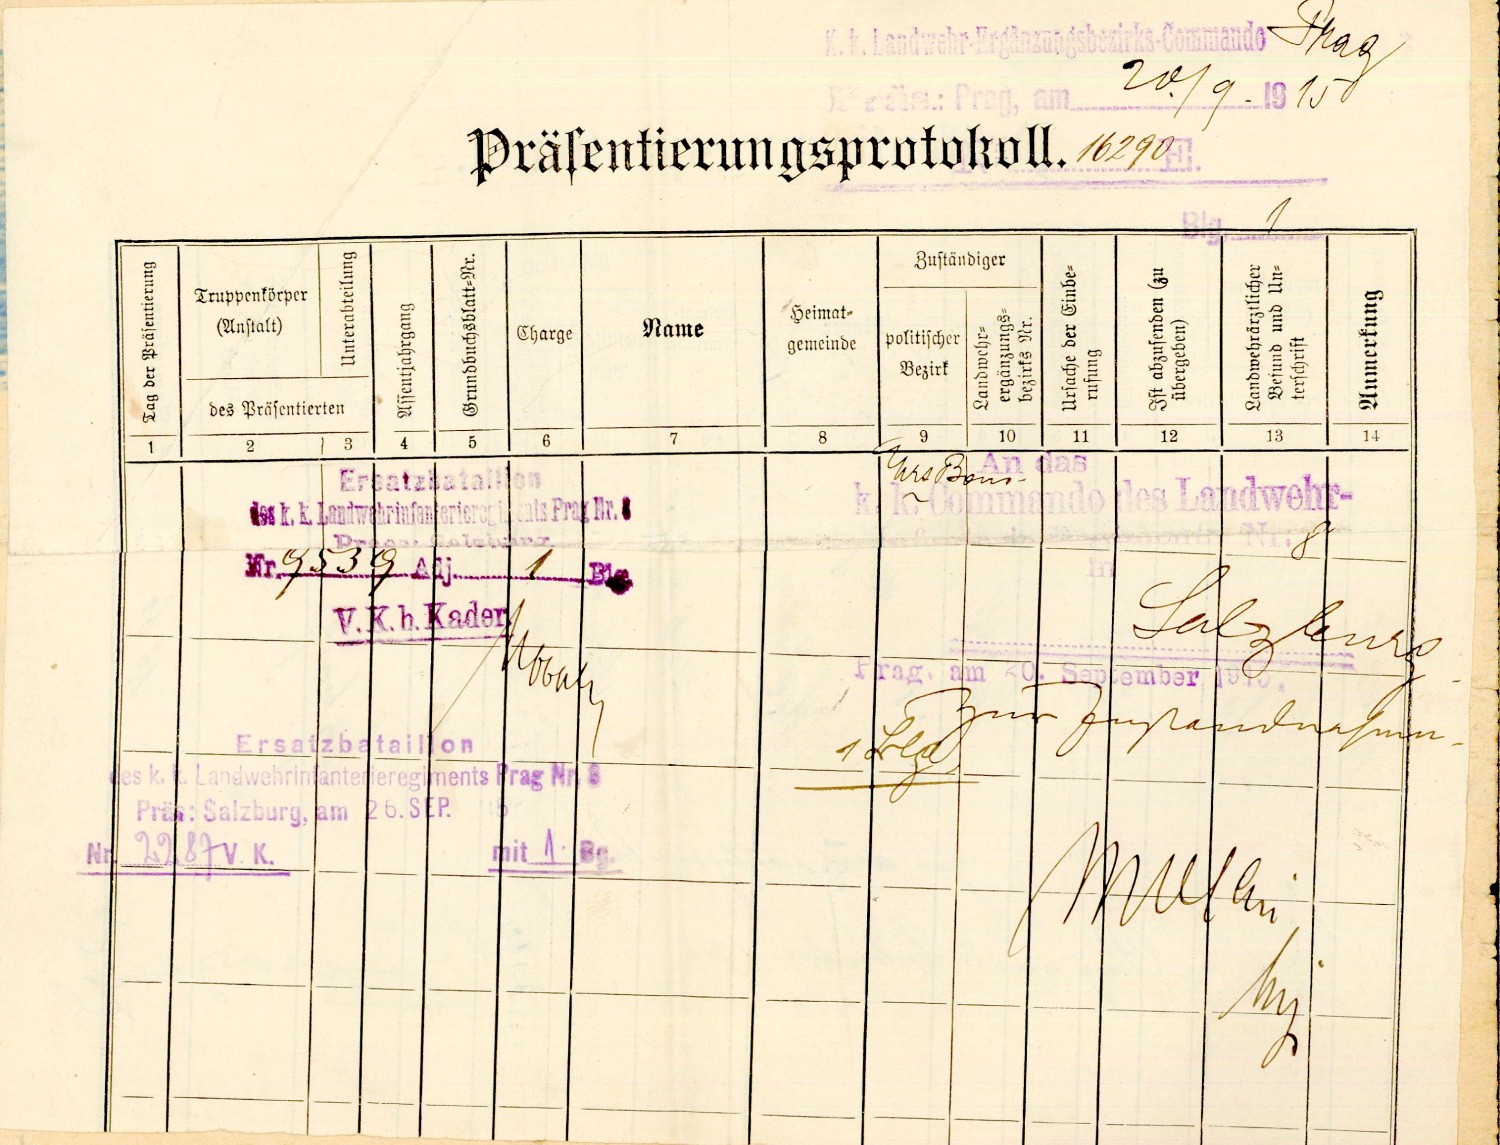 K. k. Landwehr-Ergänzungsbezirks-Commando Prag
Präs.: Prag, am 20./9. 1915
Präſentierungsprotokoll.
16290 E.
Blg. 1
Tag der Präſentierung
Truppenkörper
(Anſtalt)
Unterabteilung
des Präſentierten
Aſſentjahrgang
Grundbuchsblatt-Nr.
Charge
Name
Heimat-
gemeinde
Zuſtändiger
politiſcher
Bezirk
Landwehr-
ergänzungs-
bezirks Nr.
Urſache der Einbe-
rufung
Iſt abzuſenden (zu
übergeben)
Landwehrärztlicher
Befund und Un-
terſchrift
Anmerkung
1 2 3 4 5 6 7 8 9 10 11 12 13 14
Ersatzbataillon
des k. k. Landwehrinfanterieregiments Prag Nr. 8
Praes: Salzburg
Nr. 7539 Adj. 1 Blg.
V. K. h. Kader
An das
k. k. Commando des Landwehr-
Nr. 8
in
Salzburg
Prag, am 20. September 1915.
zur
1 Blge
Ersatzbataillon
des k. k. Landwehrinfanterieregiments Prag Nr. 8
Präs: Salzburg, am 26. SEP. 15
Nr. 2287 V. K.
mit 1 Bg.